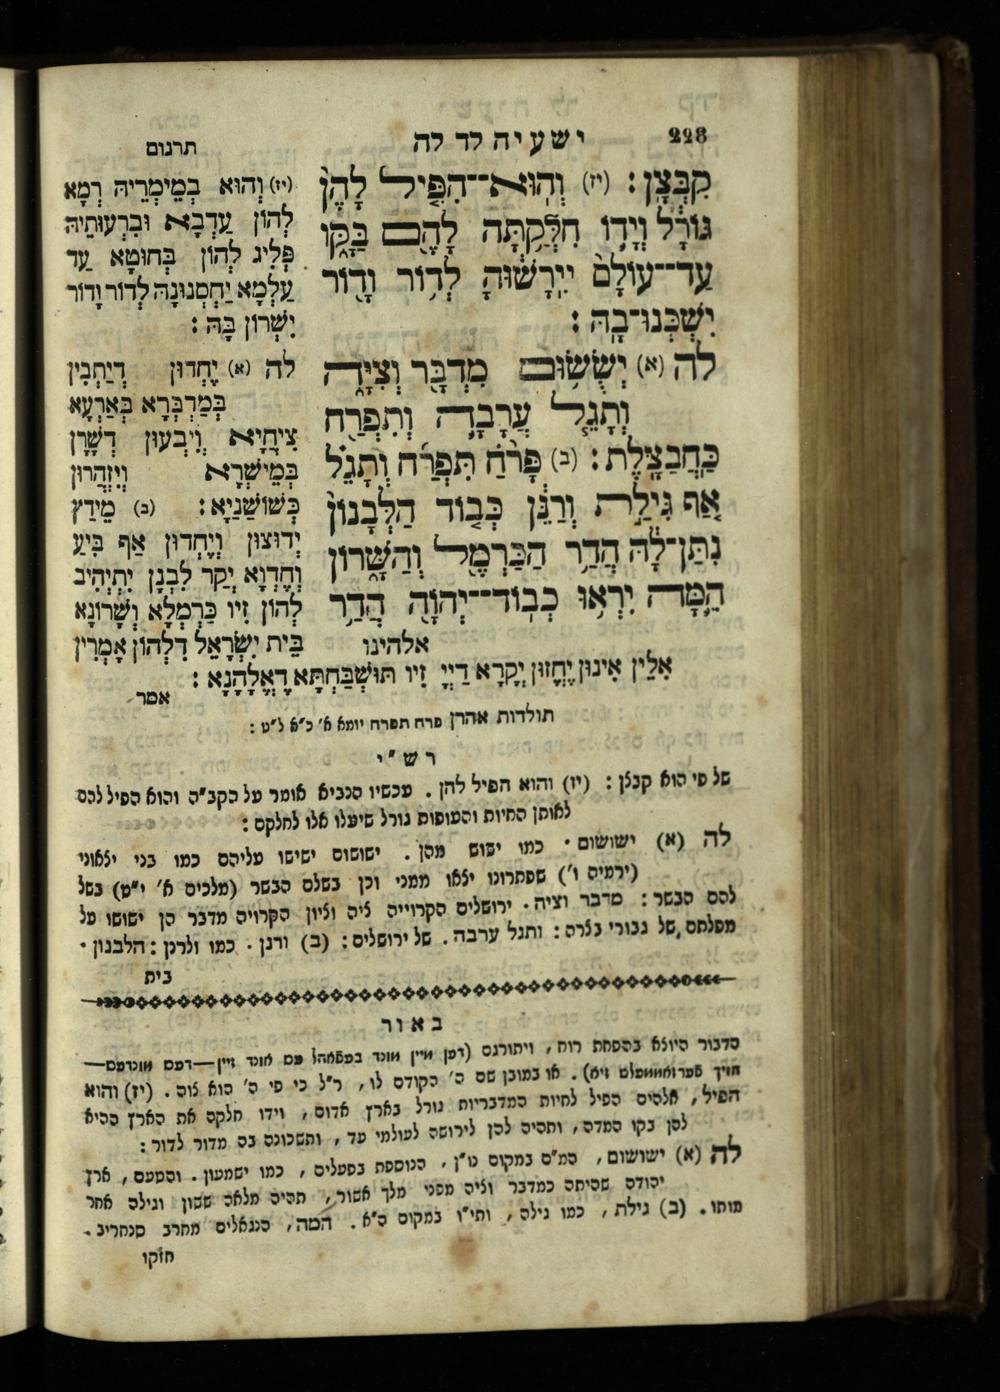 228
ישעיה לד לה
תרגום
קִבְּצָן׃ (יז) וְהֽוּא־הִפִּ֤יל לָהֶן֙
גּוֹרָ֔ל וְיָד֛וֹ חִלְּקַ֥תָּה לָהֶ֖ם בַּקָּ֑ו
עַד־עוֹלָם֙ יִֽירָשׁ֔וּהָ לְד֥וֹר וָד֖וֹר
יִשְׁכְּנוּ־בָֽהּ׃
לה (א) יְשֻׂשׂ֥וּם מִדְבָּ֖ר וְצִיָּ֑ה
וְתָגֵ֧ל עֲרָבָ֛ה וְתִפְרַ֖ח
כַּחֲבַצָּֽלֶת׃ (ב) פָּרֹ֨חַ תִּפְרַ֜ח וְתָגֵ֗ל
אַ֚ף גִּילַ֣ת וְרַנֵּ֔ן כְּב֤וֹד הַלְּבָנוֹן֙
נִתַּן־לָ֔הּ הֲדַ֥ר הַכַּרְמֶ֖ל וְהַשָּׁר֑וֹן
הֵ֛מָּה יִרְא֥וּ כְבוֹד־יְהוָ֖ה הֲדַ֥ר
אלהינו
(יז) וְהוּא בְמֵימְרֵיהּ רְמָא
לְהוֹן עַדְבָא וּבִרְעוּתֵיהּ
פְּלִיג לְהוֹן בְּחוּטָא עַד
עַלְמָא יַחְסְנוּנָהּ לְדוֹר וָדוֹר
יִשְׁרוֹן בָּהּ׃
לה (א) יֶחְדוּן דְיַתְבִין
בְּמַדְבְּרָא בְּאַרְעָא
צִיחֲיָא וִיבְעוּן דְשָׁרָן
בְּמֵישְׁרָא וְיִזְהֲרוּן
כְּשׁוֹשַׁנַיָא׃ (ב) מֵידַץ
יְדוּצוּן וְיֶחְדוּן אַף בִּיעַ
וְחֶדְוָא יְקַר לִבְנָן יִתְיְהִיב
לְהוֹן זִיו כַּרְמְלָא וְשָׁרוֹנָא
בֵּית יִשְׂרָאֵל דִלְהוֹן אָמְרִין
אִלֵין אִינוּן יֶחֱזוּן יְקָרָא דַיְיָ זִיו תּוּשְׁבַּחְתָּא דֶאֱלָהָנָא׃
אמר
תולדות אהרן פרח תפרח יומא א׳ כ״א ל״ט׃
רש״י
של פי הוא קבצן׃ (יז) והוא הפיל להן . עכשיו הנביא אומר על הקב״ה והוא הפיל להם
לאותן החיות והעופות גורל שיעלו אלו לחלקם׃
לה (א) ישושום . כמו ישוש מהן . ישושום ישישו עליהם כמו בני יצאוני
(ירמיה ו׳) שפתרונו יצאו ממני וכן בשלם הבשר (מלכים א׳ י״ט) בשל
להם הבשר׃ מדבר וציה . ירושלים הקרוייה ציה וציון הקרויה מדבר הן ישושו על
מפלתם של גבורי בצרה׃ ותגל ערבה . של ירושלים׃ (ב) ורנן . כמו ולרנן׃ הלבנון .
בית
באור
הפיל, אלהים הפיל לחיות המדבריות גורל בארץ אדום, וידו חלקם את הארץ ההיא
להן בקו המדה, ותהיה להן לירושה לעולמי עד, ותשכונה בה מדור לדור׃
לה (א) ישושום, המ״ם במקום נו״ן, הנוספת בפעלים, כמו ישמעון . והטעם, ארץ
יהודה שהיתה כמדבר וציה מפני מלך אשור, תהיה מלאה ששון וגילה אחר
מותו . (ב) גילת, כמו גילה, ותי״ו במקום ה״א . המה, הנגאלים מחרב סנחריב .
חזקו